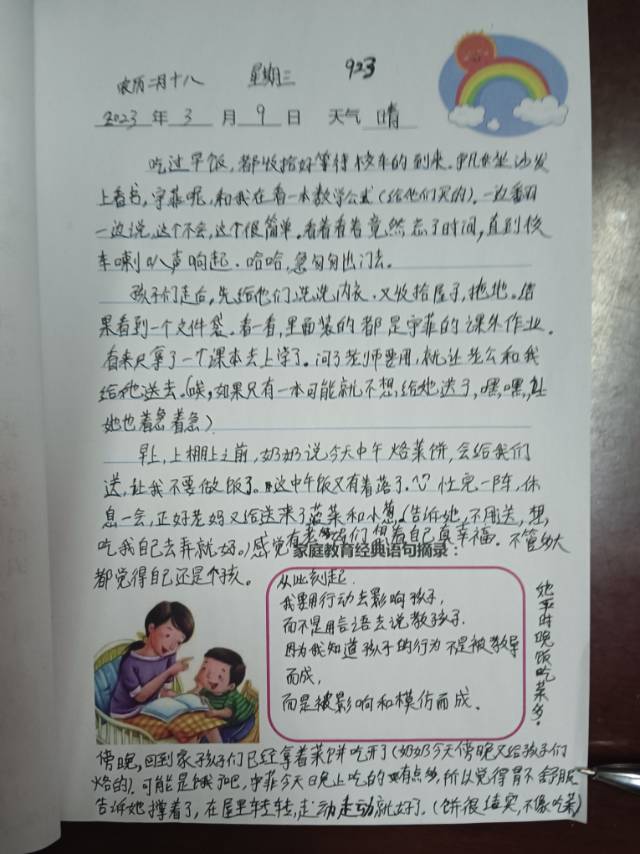 农历二月十八 星期三 923
2023 年 3 月 9 日 天气 晴
吃过早饭,都收拾好等待校车的到来。 坐沙发
上看书,宇菲呢,和我在看一本数学公式(给他们买的)。一边翻
一边说,这个不会,这个很简单。看着看着竟然忘了时间,直到校
车喇叭声响起。哈哈,急匆匆出门去。
孩子们走后,先给他们洗洗内衣,又收拾屋子,拖地。结
果看到一个文件袋。看一看,里面装的都是宇菲的课外作业。
看来只拿了一个课本去上学了。问了老师要用,就让老公和我
给她送去。(唉,如果只有一本可能就不想给她送了,嘿,嘿,让
她也着急着急)
早上,上棚上之前,奶奶说今天中午烙菜饼,会给我们
送,让我不要做饭了。这中午饭又有着落了。忙完一阵,休
息一会,正好老妈又给送来了菠菜和小葱(告诉她,不用送,想
吃我自己去弄就好。)感觉有老妈们想着自己真幸福。不管多大
都觉得自己还是个孩。
家庭教育经典语句摘录:
从此刻起:
我要用行动去影响孩子,
而不是用言语去说教孩子.
因为我知道孩子的行为不是被教导
而成,
而是被影响和模仿而成.
她平时晚饭吃菜多.
傍晚,回到家孩子们已经拿着菜饼吃开了(奶奶今天傍晚又给孩子们
烙的). 可能是饿了吧,宇菲今天晚上吃的有点多,所以觉得胃不舒服
告诉她撑着了,在屋里转转,走动走动就好了。(饼很结实,不像吃菜)